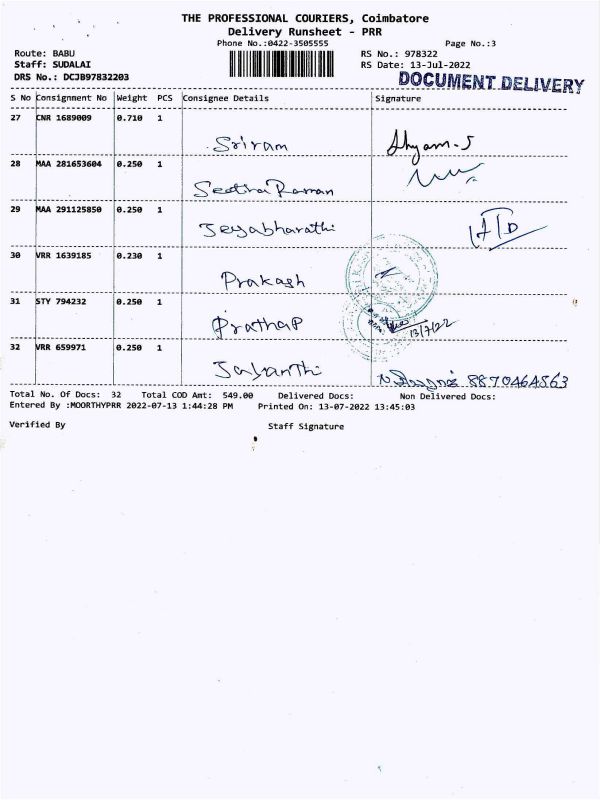 THE PROFESSIONAL COURIERS, Coimbatore
Delivery Runsheet - PRR
Phone No.:0422-3505555
Page No.:3
Route: BABU
RS No.: 978322
Staff: SUDALAI
RS Date: 13-Jul-2022
DRS No.: DCJB97832203
DOCUMENT DELIVERY
S No Consignment No Weight PCS Consignee Details Signature
27 CNR 1689009 0.710 1
Sriram Shyam.S
28 MAA 281653604 0.250 1
Seetha Raman
29 MAA 291125850 0.250 1
Jeyabharathi
30 VRR 1639185 0.230 1
Prakash
31 STY 794232 0.250 1
Prathap 13/7/22
32 VRR 659971 0.250 1
Jayanthi
8870464563
Total No. Of Docs: 32 Total COD Amt: 549.00 Delivered Docs: Non Delivered Docs:
Entered By :MOORTHYPRR 2022-07-13 1:44:28 PM Printed On: 13-07-2022 13:45:03
Verified By Staff Signature